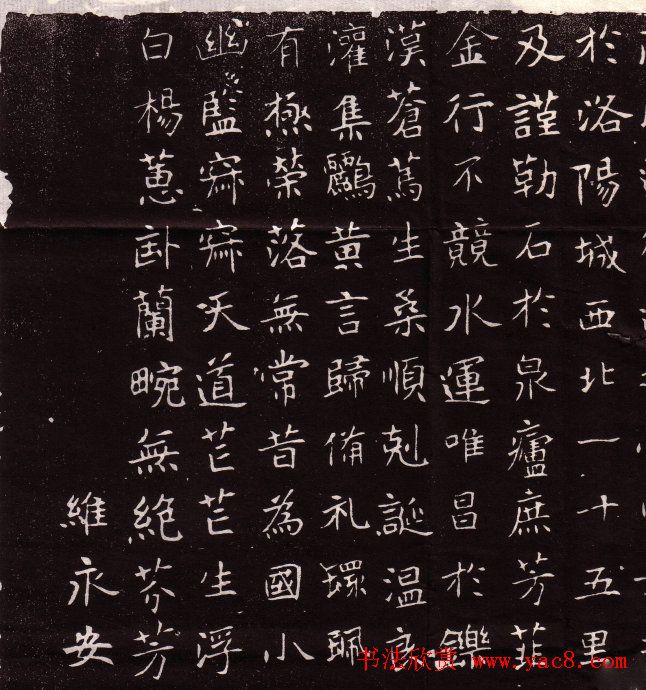 於洛陽城西北一十五里
及謹勒石於泉廬庶芳菲
金行不競水運唯昌於鑠
漠蒼蔦生桑順剋誕温
灌集鸝黄言歸備礼環珮
有極榮落無常昔為國小
幽監寐寐天道芒芒生浮
白楊蕙卦蘭畹無絕芬芳
維永安
书法欣赏 www.yac8.com